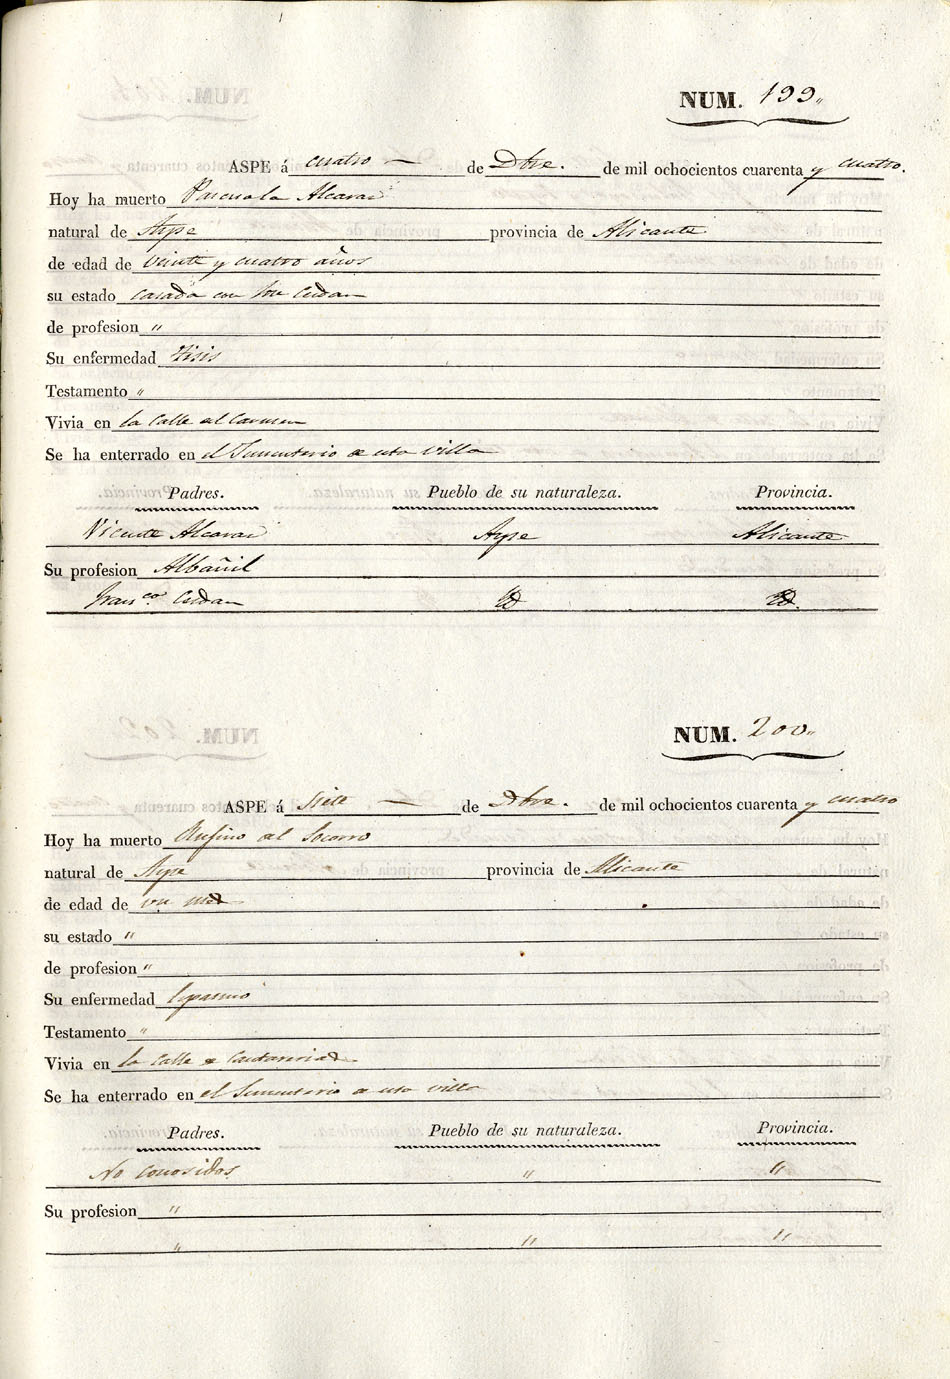 NUM. 199„
ASPE á cuatro — de Dbre. de mil ochocientos cuarenta y cuatro.
Hoy ha muerto Pascuala Alcaraz
natural de Aspe provincia de Alicante
de edad de veinte y cuatro años
su estado casada con
de profesion „
Su enfermedad tisis
Testamento „
Vivia en la Calle del Carmen
Se ha enterrado en el Sementerio de esta villa
Padres. Pueblo de su naturaleza. Provincia.
Vicente Alcaraz Aspe Alicante
Su profesion Albañil
Fran.co Cerdan Id Id.
NUM. 200„
ASPE á siete — de Dbre. de mil ochocientos cuarenta y cuatro
Hoy ha muerto Rufino del Socorro
natural de Aspe provincia de Alicante
de edad de un mes
su estado „
de profesion „
Su enfermedad espasmo
Testamento „
Vivia en la Calle de
Se ha enterrado en el Sementerio de esta villa
Padres. Pueblo de su naturaleza. Provincia.
No conosidos „ „
Su profesion „
„ „ „